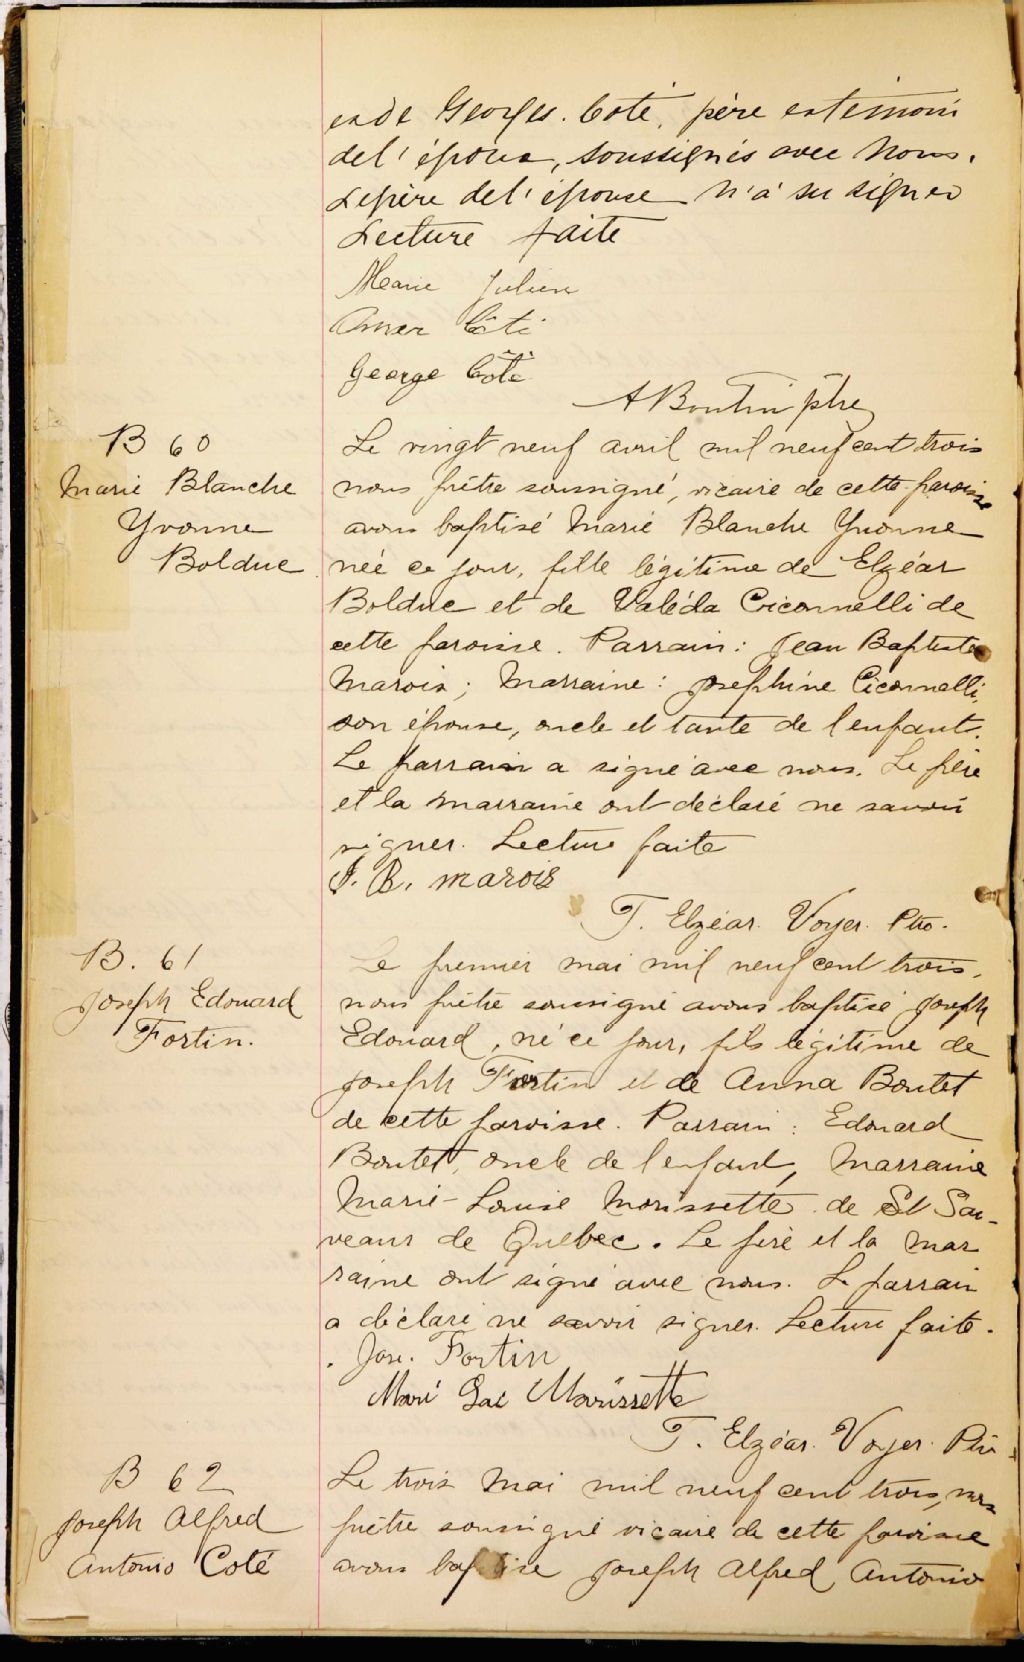 et de Georges. Coté, père et témoin
de l'époux, soussignés avec Nous.
Le père de l'épouse n'a su signer
Lecture faite
Marie Julien
Omer Côté
George Côté
A Boutin ptre
B 60
Marie Blanche
Yvonne
Bolduc
Le vingt neuf avril mil neuf cent trois
nous prêtre soussigné, vicaire de cette paroisse
avons baptisé Marie Blanche Yvonne
née ce jour, fille légitime de Elzéar
Bolduc et de Valéda Ciconnelli de
cette paroisse. Parrain: Jean Baptiste
Marois; Marraine: Joséphine Ciconnelli,
son épouse, oncle et tante de l'enfant.
Le parrain a signé avec nous. Le père
et la marraine ont déclaré ne savoir
signer. Lecture faite
J. B. marois
T. Elzéar. Voyer. Ptre.
B. 61
Joseph Edouard
Fortin.
Le premier mai mil neuf cent trois,
nous prêtre soussigné avons baptisé Joseph
Edouard, né ce jour, fils légitime de
Joseph Fortin et de Anna Boutet
de cette paroisse. Parrain: Edouard
Boutet, oncle de l'enfant, Marraine
Marie-Louise Morissette de St Sau-
veaur de Québec. Le père et la mar
raine ont signé avec nous. Le parrain
a déclaré ne savoir signer. Lecture faite.
Jos. Fortin
Mari Morissette
T. Elzéar. Voyer. Ptre
B 62
Joseph Alfred
Antonio Coté
Le trois Mai mil neuf cent trois, nous
prêtre soussigné vicaire de cette paroisse
avons baptisé Joseph Alfred Antonio